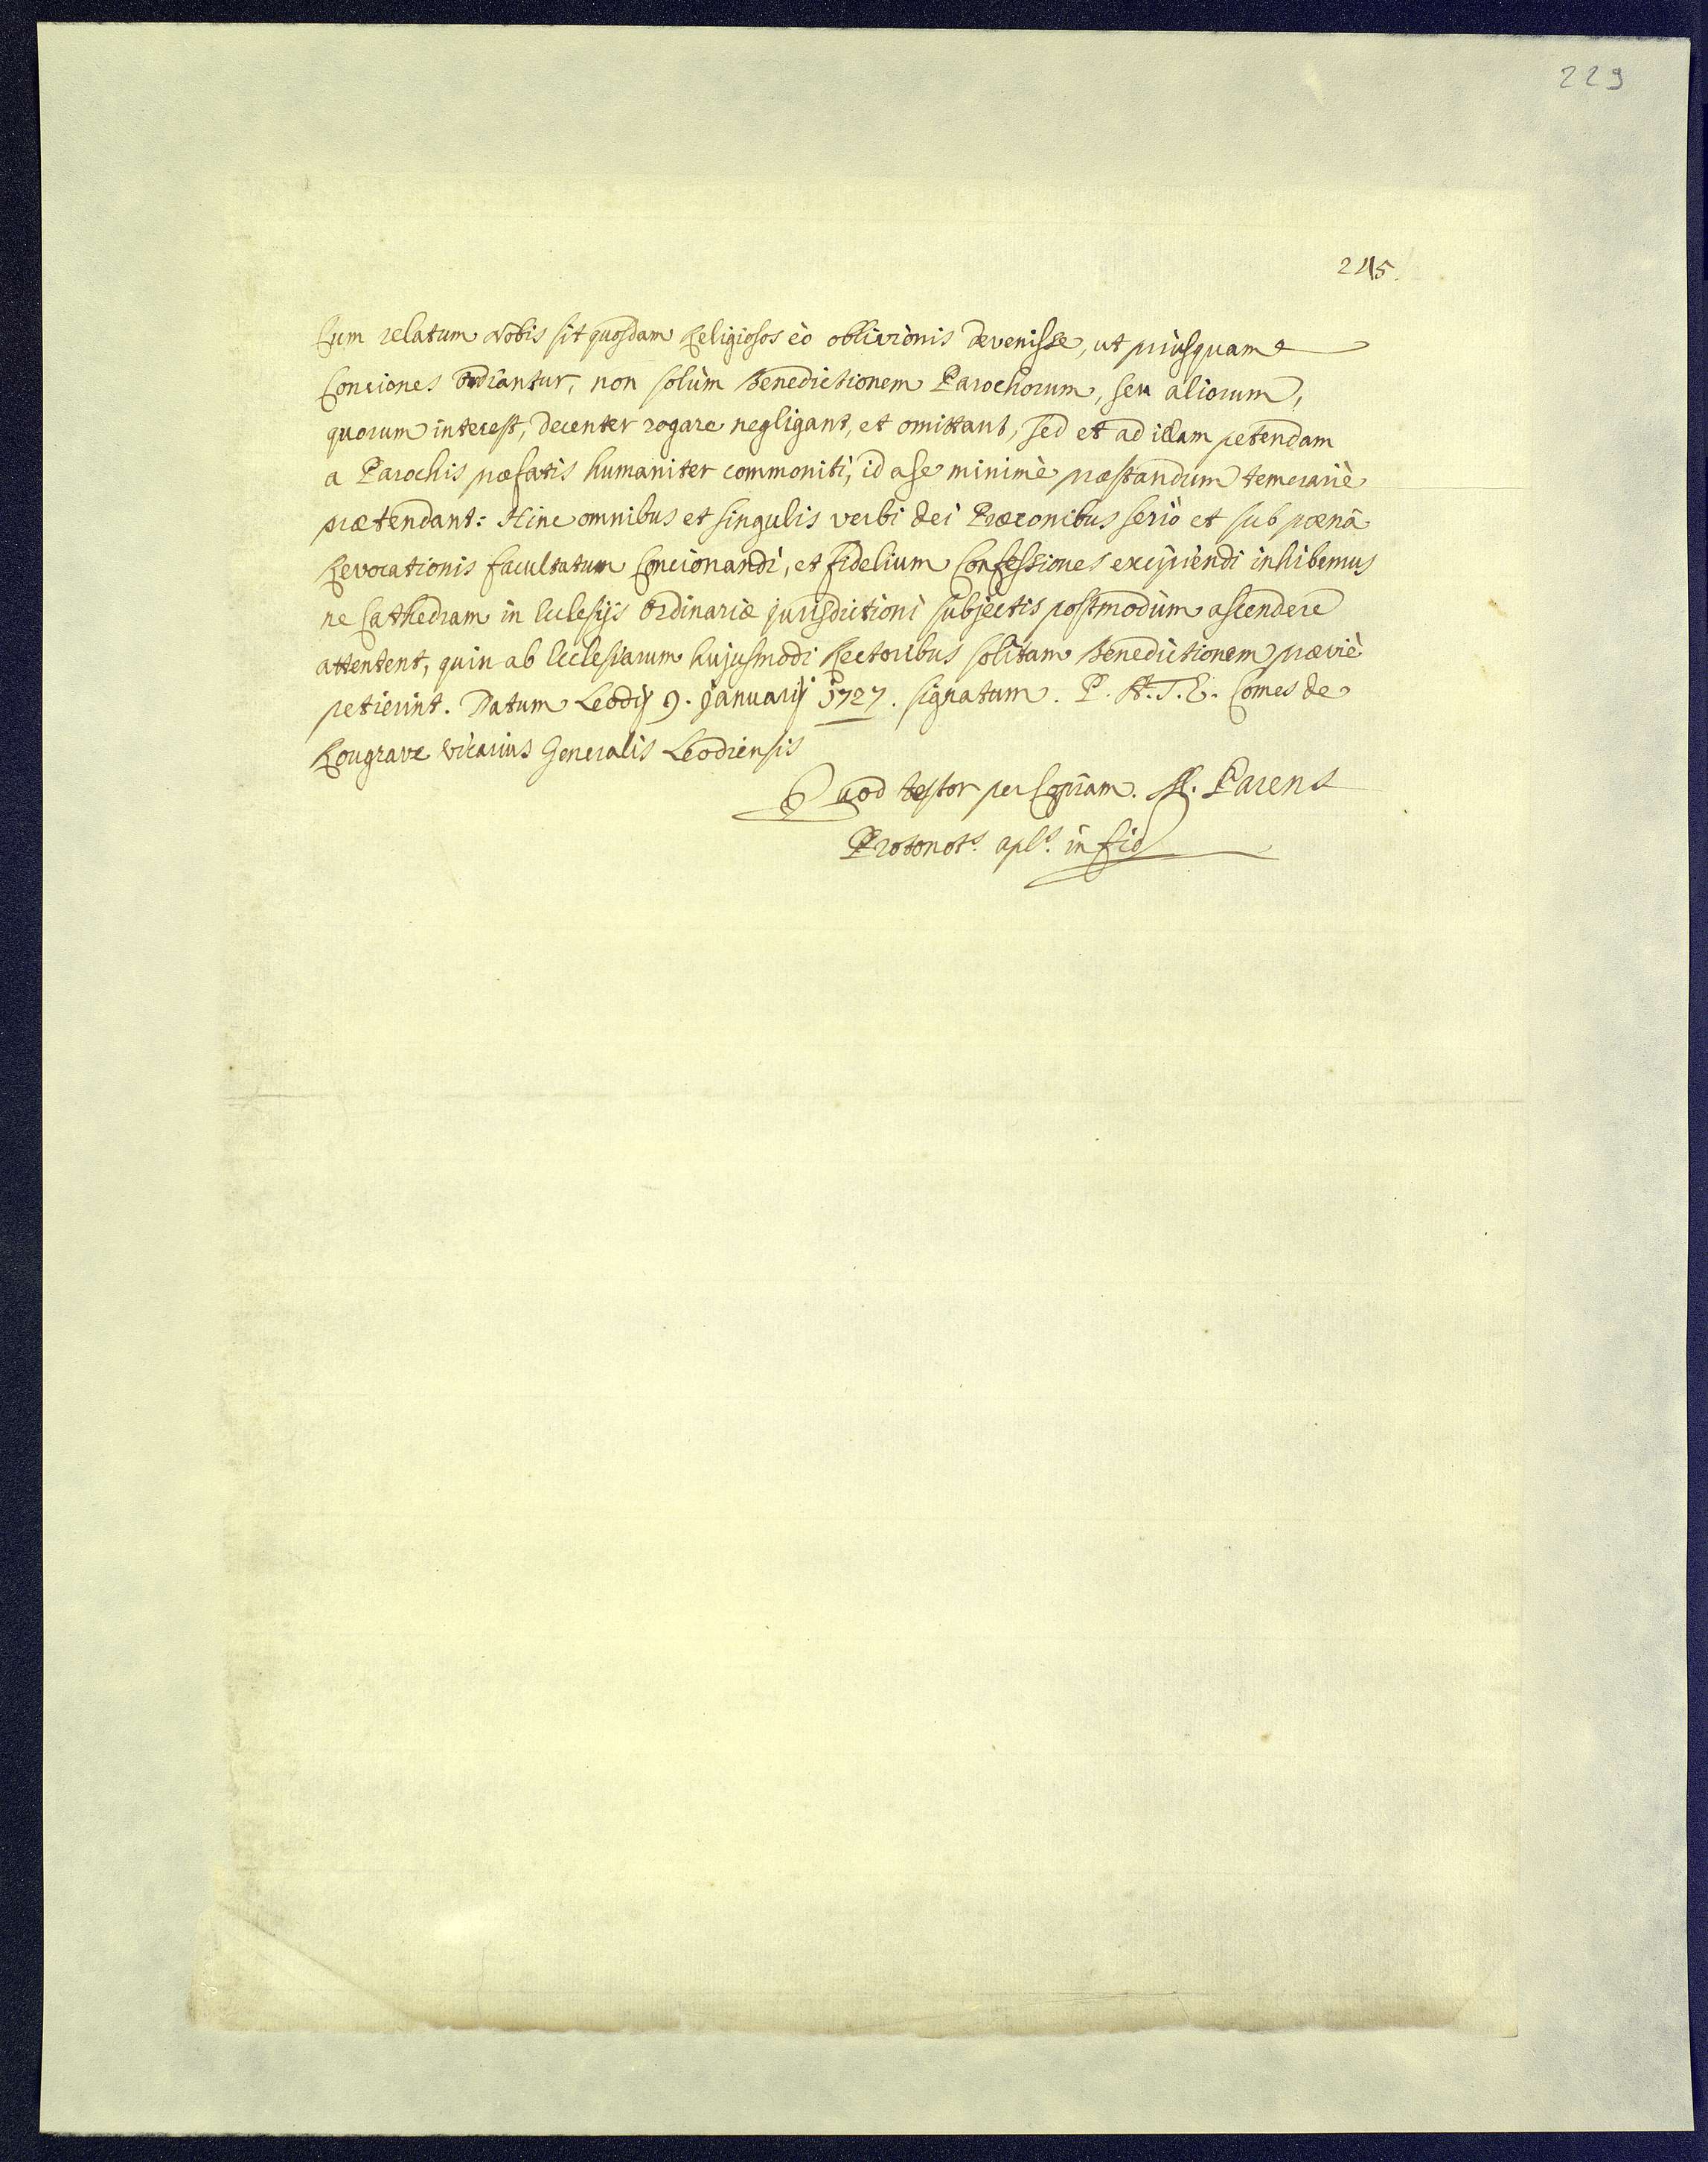 229
245.
Cum relatum Nobis sit quosdam Religiosos eò oblivionis devenisse, ut priusquam
Conciones ordiantur, non solùm Benedictionem Parochorum, seu aliorum,
quorum interest, decenter rogare negligant, et omittant, sed et ad illam petendam
a Parochis præfatis humaniter commoniti, id a se minimè præstandum temerariè
prætendant: Hinc omnibus et singulis verbi dei Præconibus seriò et sub pœnâ
Revocationis facultatum Concionandi, et fidelium Confessiones excipiendi inhibemus
ne Cathedram in Ecclesijs Ordinariæ jurisdictioni subjectis postmodùm ascendere
attentent, quin ab Ecclesiarum hujusmodi Rectoribus solitam Benedictionem præviè
petierint. Datum Leodij 9. januarij 1727. signatum. P. A.T.E. Comes de
Rougrave vicarius Generalis Leodiensis
Quod testor per Copiam. A. Parent
Protonots. apls. in fid